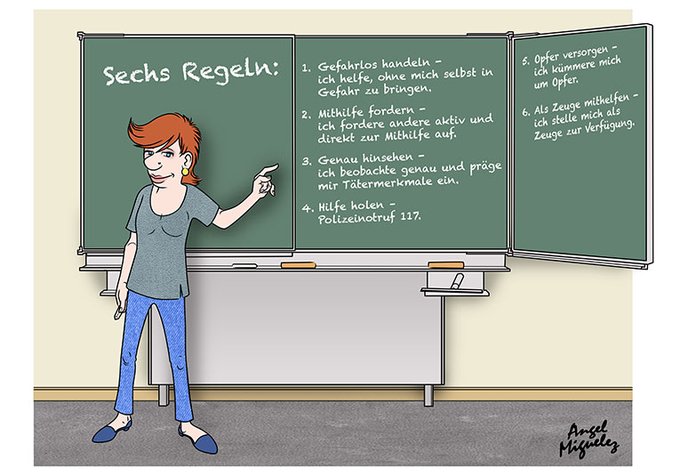 Sechs Regeln:
1. Gefahrlos handeln –
ich helfe, ohne mich selbst in
Gefahr zu bringen.
2. Mithilfe fordern –
ich fordere andere aktiv und
direkt zur Mithilfe auf.
3. Genau hinsehen –
ich beobachte genau und präge
mir Tätermerkmale ein.
4. Hilfe holen –
Polizeinotruf 117.
5. Opfer versorgen –
ich kümmere mich
um Opfer.
6. Als Zeuge mithelfen –
ich stelle mich als
Zeuge zur Verfügung.
Angel
Miguelez